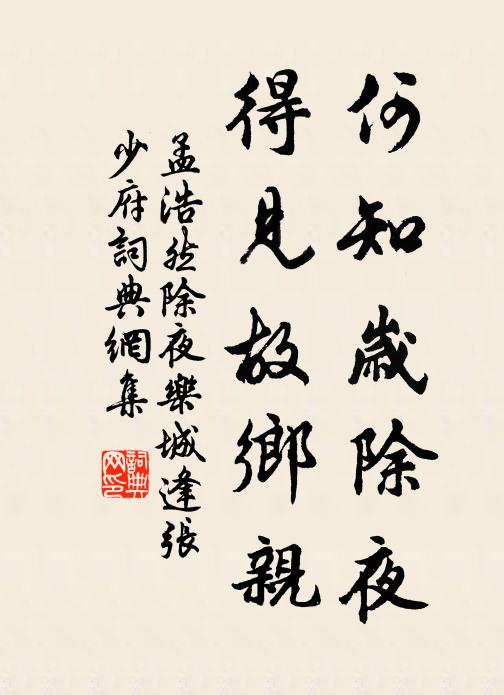 何知歲除夜
得見故鄉親
孟浩然除夜樂城逢張
少府詞典網集
詞典網印